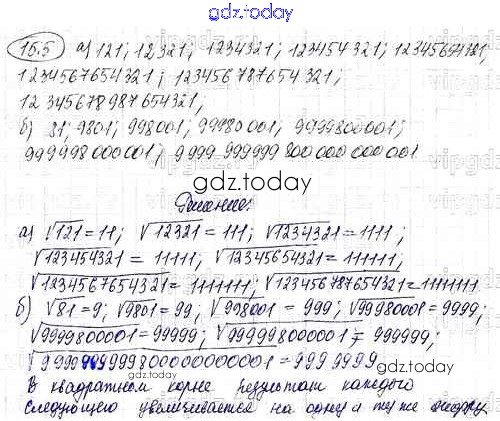 gdz.today
16.5 а) 121; 12321; 1234321; 123454321; 12345654321;
1234567654321; 123456787654321;
12345678987654321;
б) 81; 9801; 998001; 99980001; 9999800001;
999998000001;
gdz.today
Решение:
а) √121 = 11; √12321 = 111; √1234321 = 1111;
√123454321 = 11111, √12345654321 = 111111;
√1234567654321 = 1111111; √123456787654321 = 11111111.
б) √81 = 9; √9801 = 99; √998001 = 999; √99980001 = 9999;
√9999800001 = 99999; √999998000001 = 999999;
gdz.today
В квадратном корне результат каждого
следующего увеличивается на одну и ту же цифру